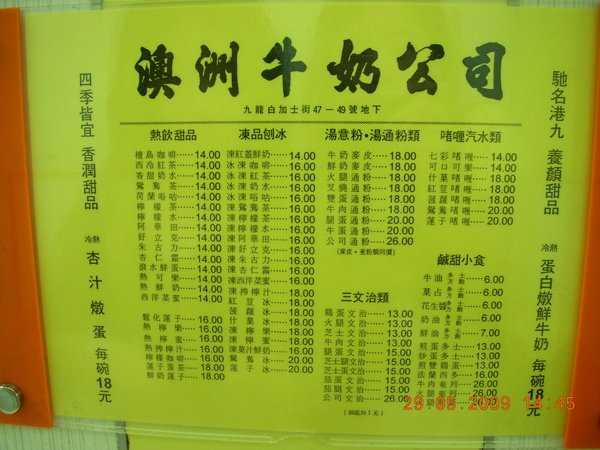 澳洲牛奶公司
九龍白加士街47－49號地下
四季皆宜 香潤甜品
冷熱 杏汁燉蛋 每碗18元
馳名港九 養顏甜品
冷熱 蛋白燉鮮牛奶 每碗18元
熱飲甜品
檀島咖啡 14.00
西冷紅茶 14.00
香甜奶水 14.00
鴛鴦茶 14.00
荷蘭唂咕 14.00
檸檬茶 14.00
檸檬水 14.00
阿華田 14.00
好立克 14.00
朱古力 14.00
杏仁霜 14.00
滾水鮮蛋 14.00
熱可樂 14.00
熱鮮奶 14.00
西洋菜蜜 14.00
鬆化蓮子 16.00
熱檸樂 16.00
熱檸蜜 16.00
熱檸汁 16.00
檸檬咖啡 16.00
蓮子蛋茶 18.00
鮮奶蓮子 18.00
凍品刨冰
凍紅蓋鮮奶 14.00
凍咖啡 16.00
凍紅茶 16.00
凍奶水 16.00
凍唂咕 16.00
凍檸檬茶 16.00
凍檸檬水 16.00
凍阿華田 16.00
凍好立克 16.00
凍朱古力 16.00
凍杏仁霜 16.00
凍西洋菜蜜 16.00
凍檸汁 18.00
紅荳冰 18.00
菠蘿冰 18.00
什菓冰 18.00
凍檸樂 18.00
凍檸蜜 18.00
凍菓汁鮮奶 18.00
鴛鴦冰 20.00
蓮子冰 20.00
湯意粉•湯通粉類
牛奶麥皮 18.00
鮮奶麥皮 18.00
火腿通粉 18.00
叉燒通粉 18.00
雙蛋通粉 18.00
牛肉通粉 18.00
腿蛋通粉 20.00
牛蛋通粉 20.00
公司通粉 26.00
(麥皮•意粉類同價)
三文治類
鷄蛋文治 13.00
火腿文治 13.00
芝士文治 13.00
牛肉文治 13.00
腿蛋文治 15.00
芝士腿文治 15.00
芝士蛋文治 15.00
茄蛋文治 15.00
茄牛文治 15.00
公司文治 26.00
(烘底加1元)
啫喱汽水類
七彩啫喱 14.00
可口可樂 14.00
什菓啫喱 18.00
紅荳啫喱 18.00
菠蘿啫喱 18.00
鴛鴦啫喱 20.00
蓮子啫喱 20.00
鹹甜小食
牛油多士 6.00
菓占多士 6.00
花生醬多士 6.00
奶油多士 6.00
鮮油多士 7.00
煎蛋多士 13.00
炒蛋多士 13.00
煎雙鷄蛋 13.00
法蘭西多 16.00
牛肉奄列 26.00
火腿奄列 26.00
29.03.2009 14:45